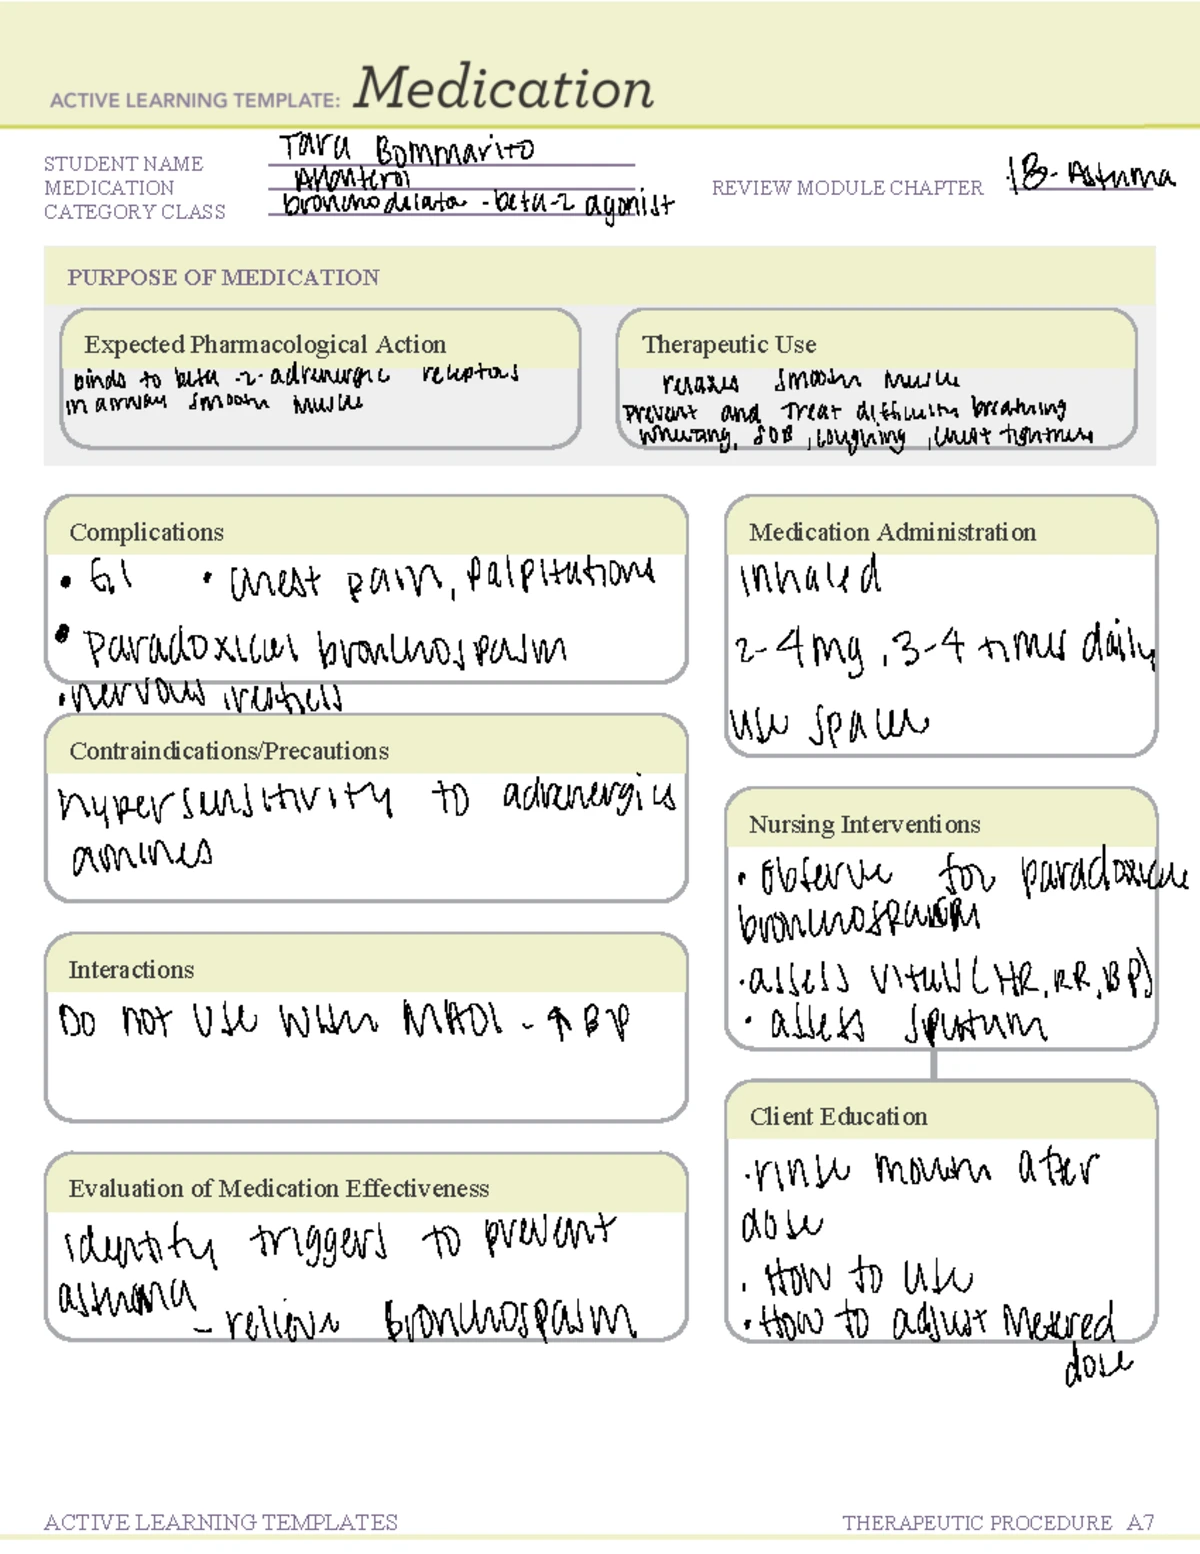 ACTIVE LEARNING TEMPLATE: Medication
STUDENT NAME Tara Bommarito
MEDICATION
CATEGORY CLASS bronchodilator - beta-2 agonist
REVIEW MODULE CHAPTER 18 - Asthma
PURPOSE OF MEDICATION
Expected Pharmacological Action
binds to beta-2-adrenergic receptors
in airway smooth muscle
Therapeutic Use
relaxes smooth muscle
prevent and treat difficulty breathing
wheezing, SOB, coughing, chest tightness
Complications
• GI • chest pain, palpitations
• paradoxical bronchospasm
• nervous, restless
Contraindications/Precautions
hypersensitivity to adrenergics
amines
Interactions
Do not use when MAOI - ↑ BP
Evaluation of Medication Effectiveness
identify triggers to prevent
asthma
- relieve bronchospasm
Medication Administration
inhaled
2-4 mg, 3-4 times daily
use spacer
Nursing Interventions
• observe for paradoxical
bronchospasm
• assess vitals (HR, RR, BP)
• assess sputum
Client Education
• rinse mouth after
dose
• How to use
• How to adjust Metered
dose
ACTIVE LEARNING TEMPLATES
THERAPEUTIC PROCEDURE A7